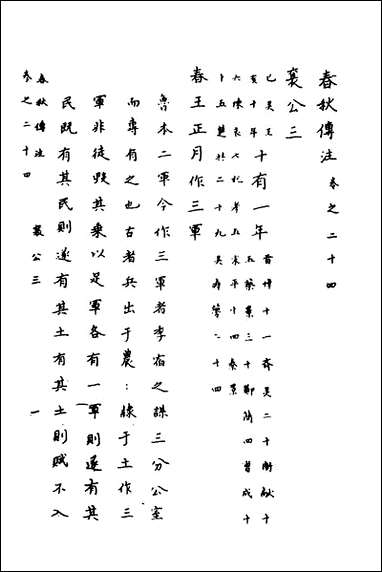 春秋傳注 卷之二十四
襄公三
己灵王
亥十年
十有一年
晉悼十一齊灵二十衛献十
五蔡景三十鄭簡四曹成十
六陳哀七杞孝五宋平十四秦景
十五楚共二十九吳壽夢二十四
春王正月作三軍
魯本二軍今作三軍者季宿之謀三分公室
而專有之也古者兵出于農:隸于土作三
軍非徒毀其乘以足軍各有一軍則遂有其
民既有其民則遂有其土有其土則賦不入
春秋傳注
卷之二十四 襄公三 一